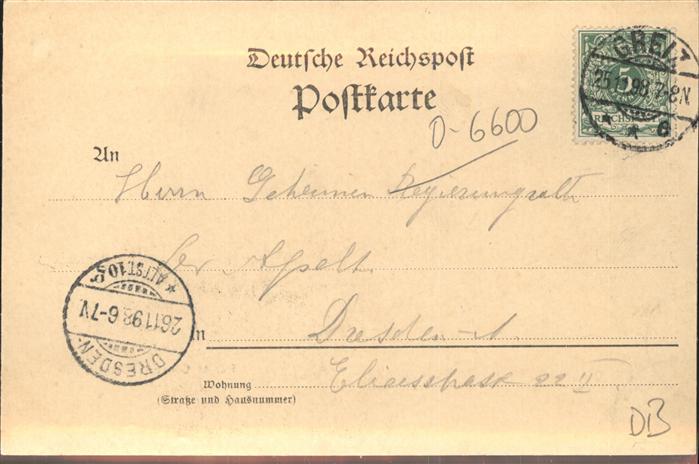 Deutsche Reichspost
Postkarte
GREIZ
25.11.98.7-8N.
* * a
5
REICHSP
D-6600
An
Herrn Geheimen Regierungsrath
Apelt
DRESDEN-
26.11.98.6-7V.
* ALTST.10
in Dresden-A.
Wohnung Eliasstrasse 22 II
(Straße und Hausnummer)
DB